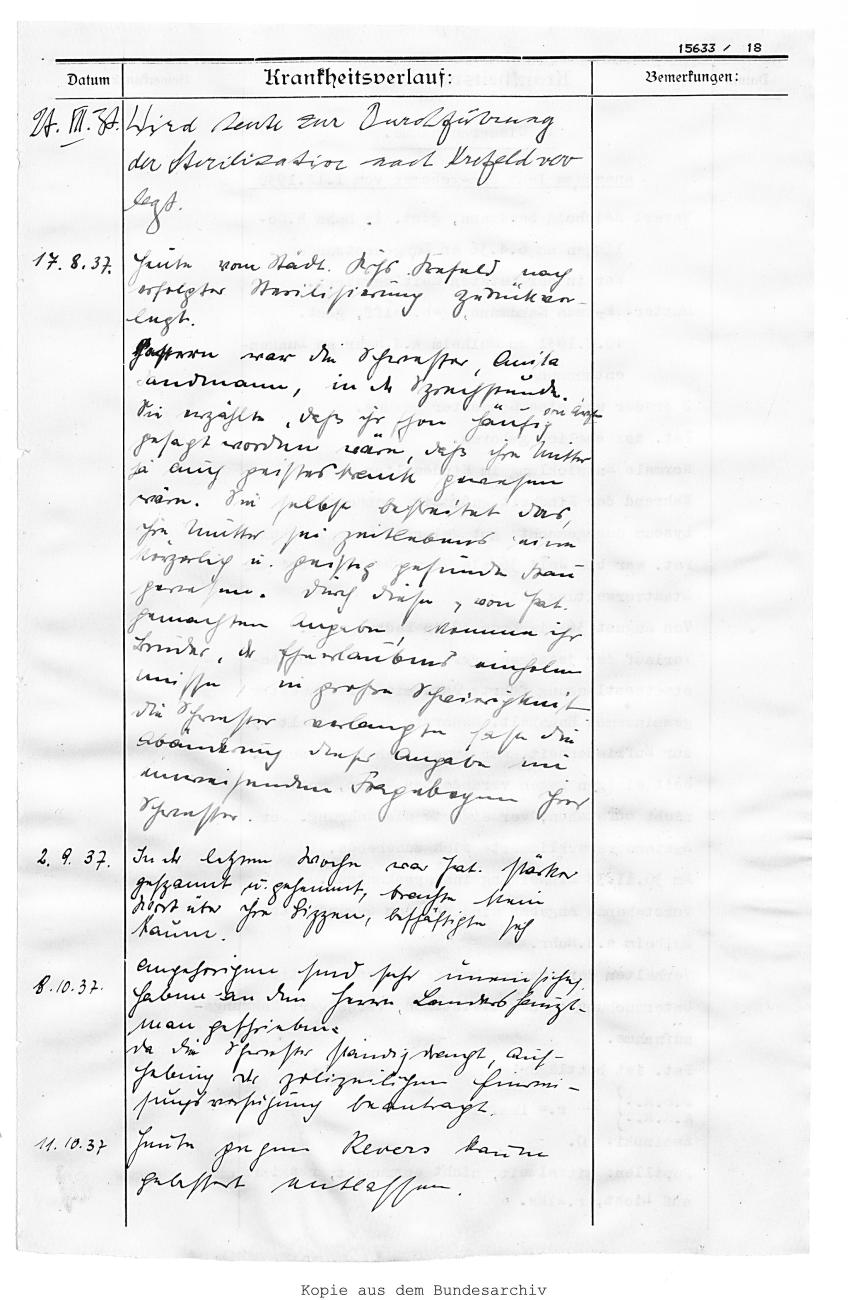 15633 / 18
Datum Krankheitsverlauf: Bemerkungen:
Wird heute zur Durchführung
der Sterilisation nach Krefeld ver
legt.
17.8.37. Heute vom Städt. Krhs. Krefeld nach
erfolgter Sterilisierung zurückver-
legt.
war die Schwester, Anita
Landmann, in der Sprechstunde.
Sie erzählte, daß ihr schon häufig
gesagt worden wäre, daß ihre Mutter
ja auch geisteskrank gewesen
wäre. Sie selbst das,
ihre Mutter sei zeitlebens eine
körperlich u. geistig gesunde Frau
gewesen. Durch diese, von Pat.
gemachten Angaben, komme ihr
Bruder, der Eheerlaubnis einholen
müsse, in große Schwierigkeit
die Schwester verlangte die
Abänderung dieser Angabe im
Fragebogen ihrer
Schwester.
2.9.37. In der letzten Woche war Pat. stärker
gespannt u. gehemmt, brachte kein
Wort über ihre Lippen, beschäftigte sich
kaum.
8.10.37. Angehörigen sind sehr uneinsichtig,
haben an den Herrn Landeshaupt-
man geschrieben.
Da die Schwester ständig drängt, Auf-
hebung der polizeilichen Einwei-
sungsverfügung beantragt.
11.10.37 Heute gegen Revers kaum
gebessert entlassen.
Kopie aus dem Bundesarchiv